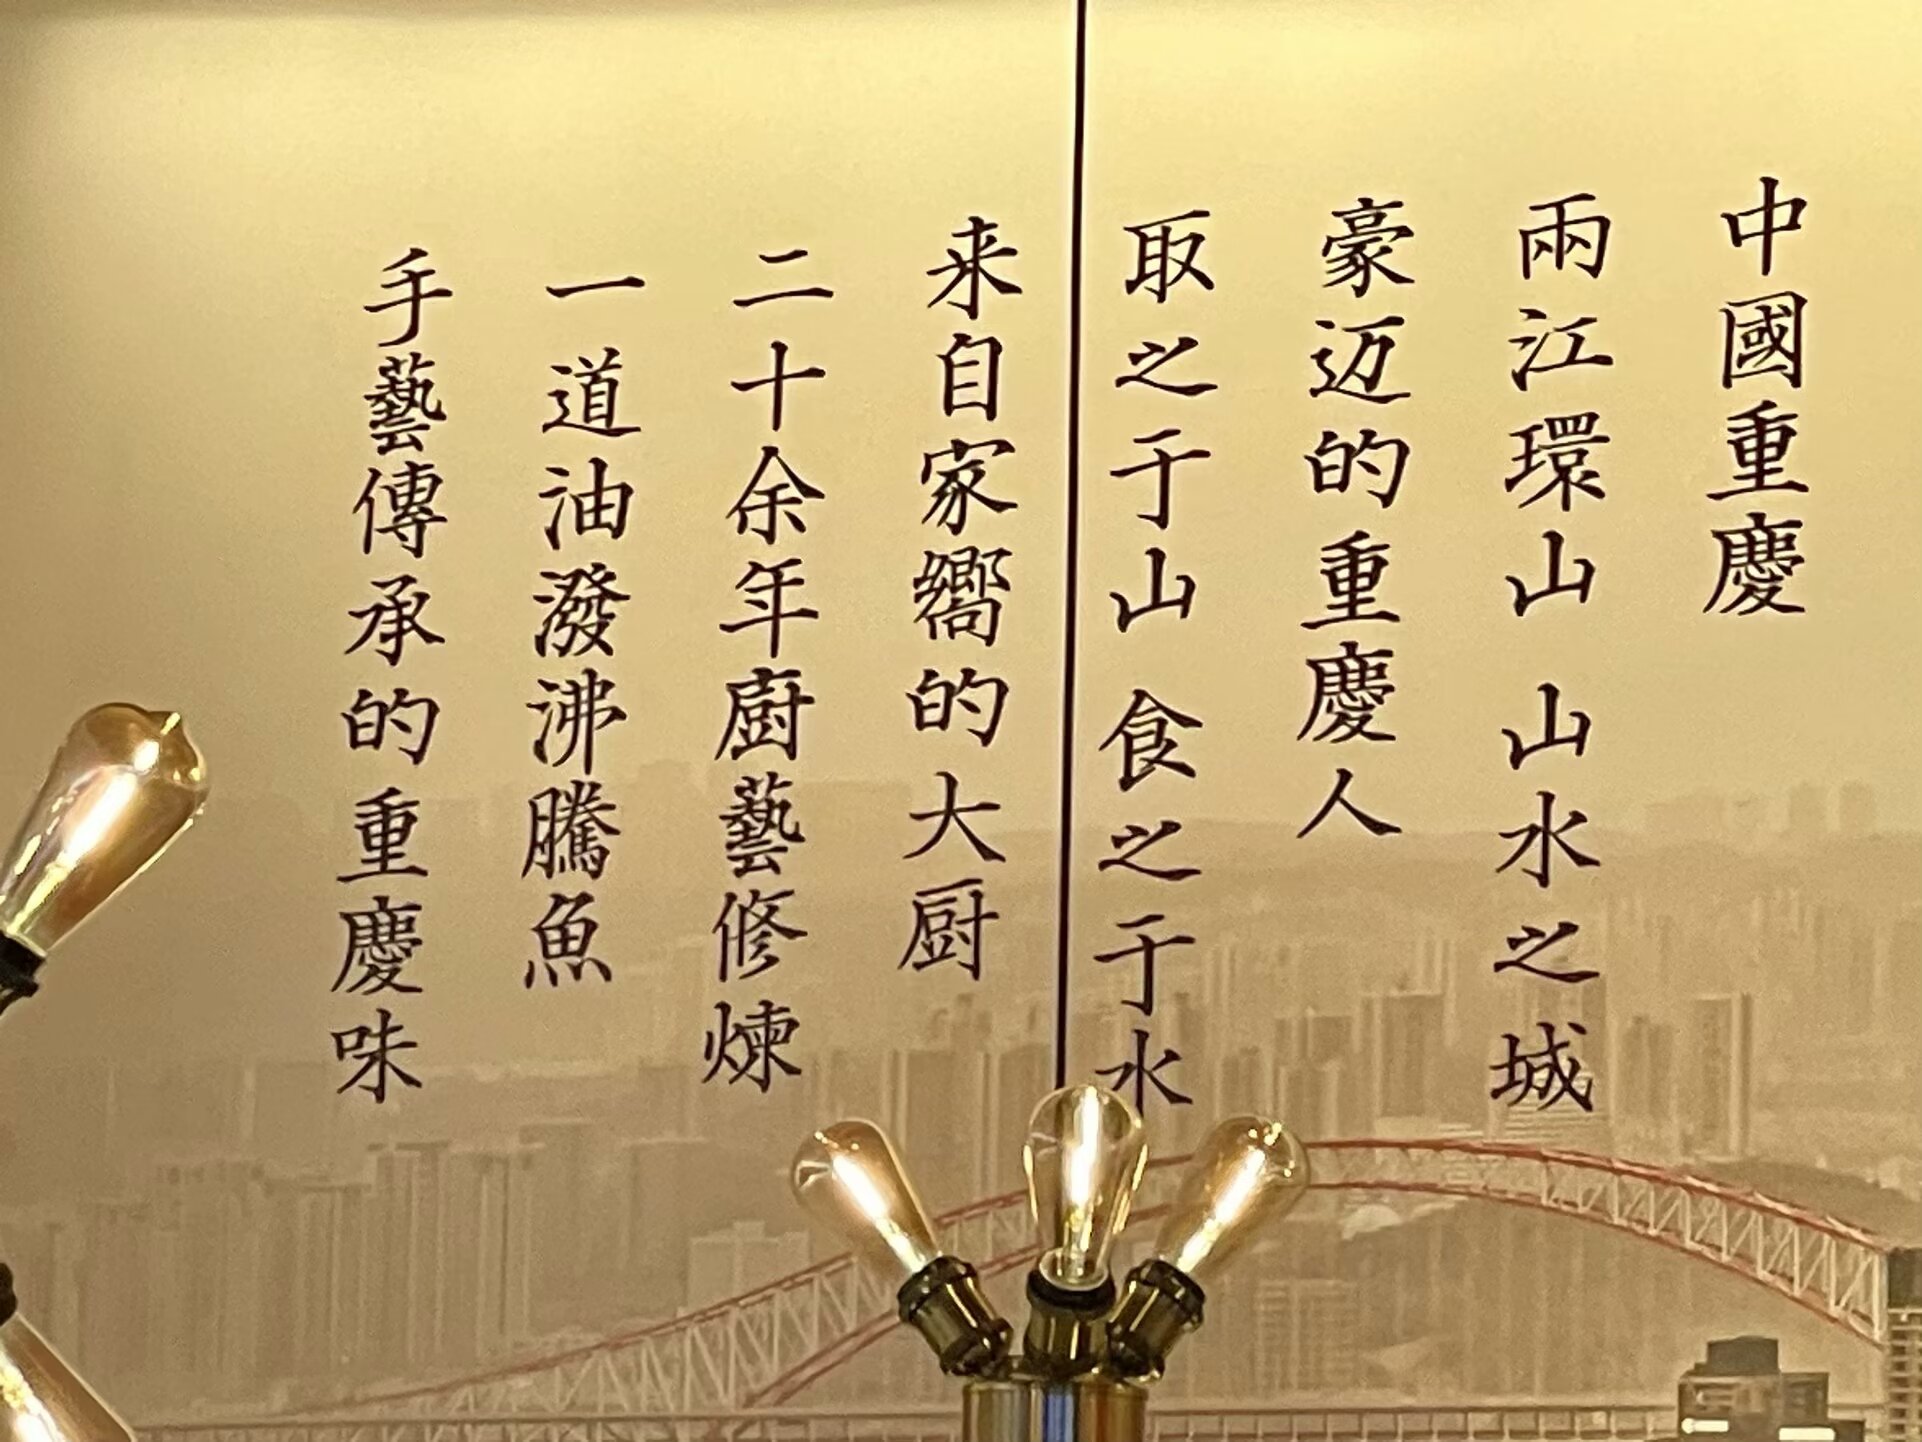 中國重慶
兩江環山 山水之城
豪迈的重慶人
取之于山 食之于水
来自家嚮的大厨
二十余年廚藝修煉
一道油潑沸騰魚
手藝傳承的重慶味